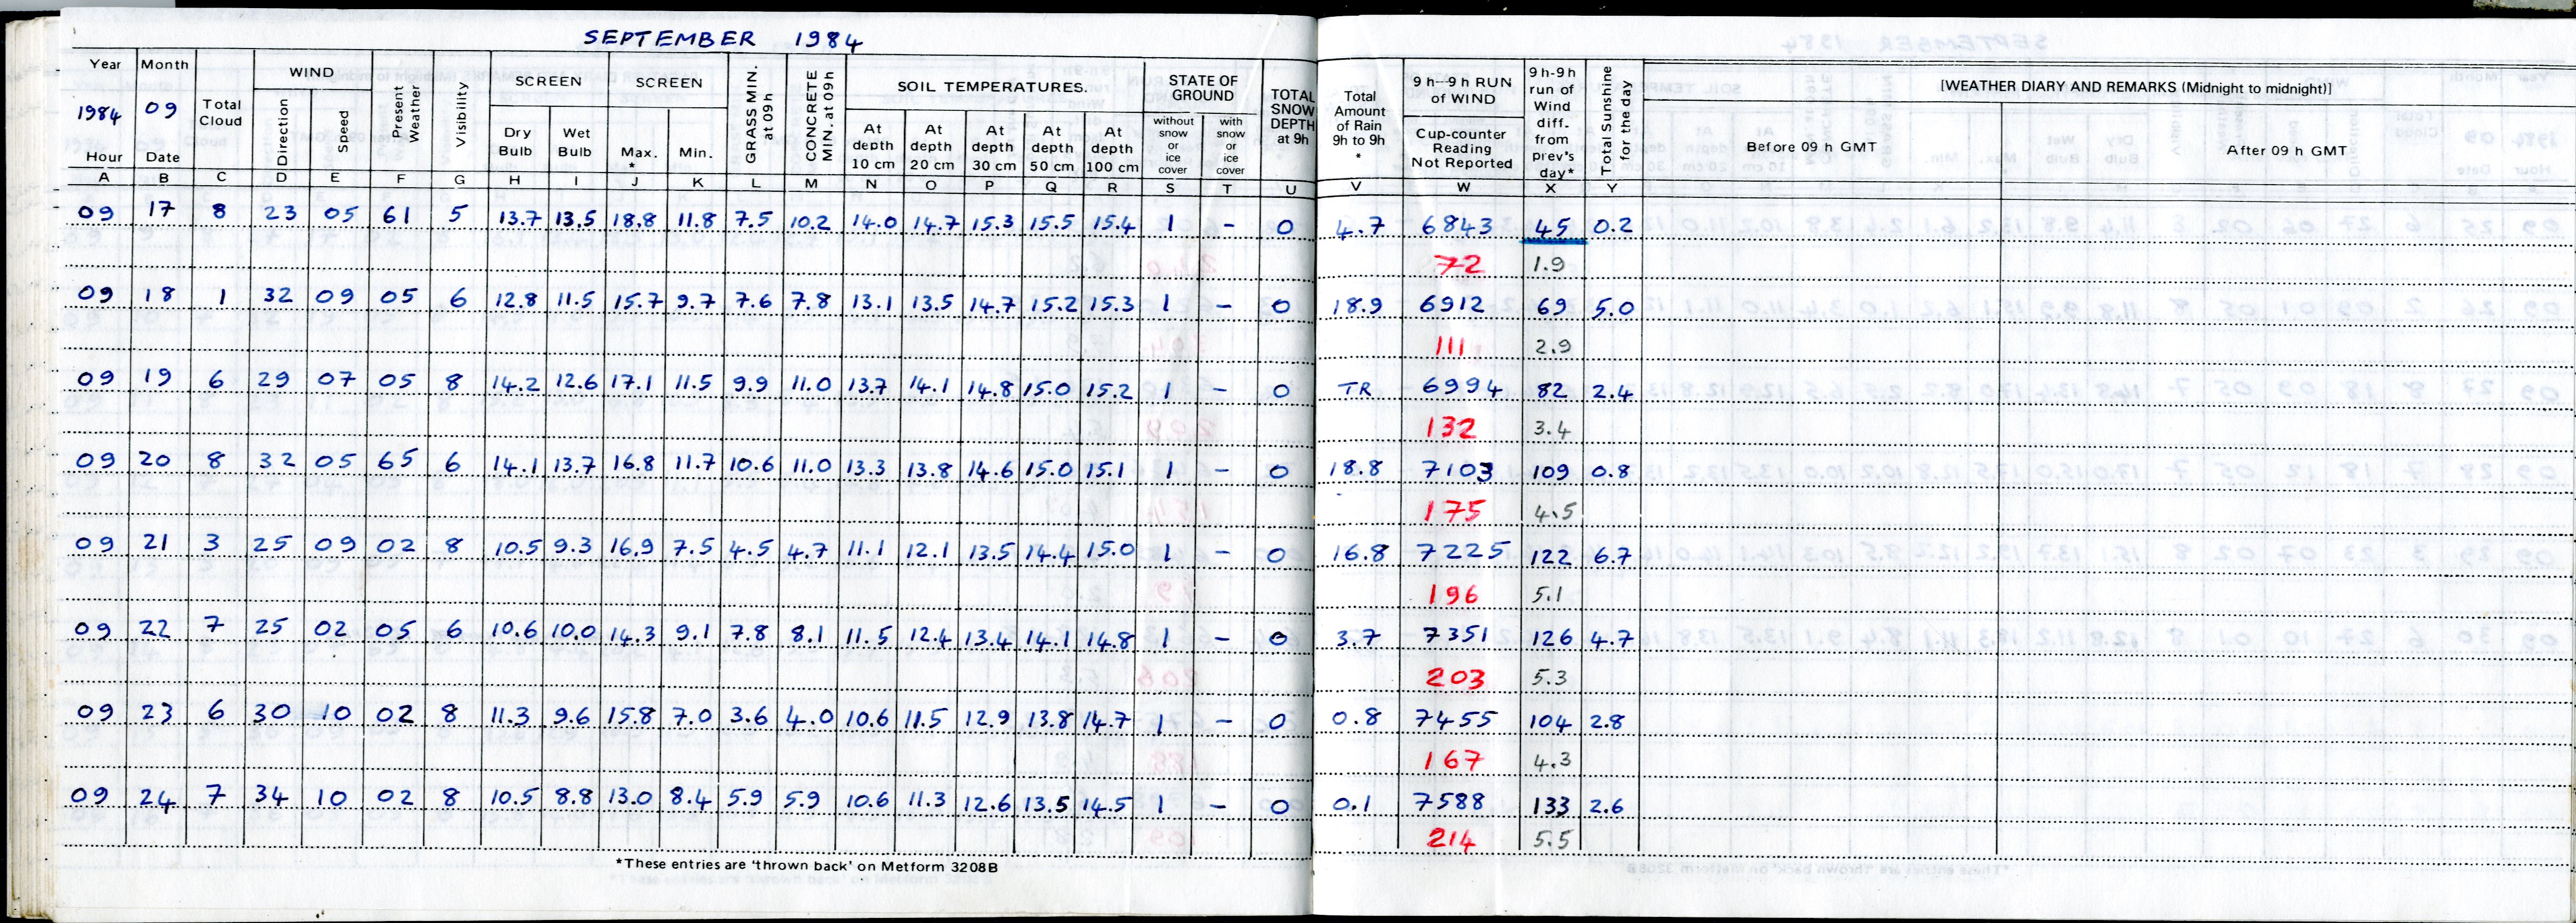 SEPTEMBER 1984
Year Month Total Cloud WIND Present Weather Visibility SCREEN SCREEN GRASS MIN. at 09h CONCRETE MIN. at 09h SOIL TEMPERATURES. STATE OF GROUND TOTAL SNOW DEPTH at 9h Total Amount of Rain 9h to 9h * 9h–9h RUN OF WIND 9h-9h run of Wind diff. from prev's day* Total Sunshine for the day [WEATHER DIARY AND REMARKS (Midnight to midnight)]
1984 09 Direction Speed Dry Bulb Wet Bulb Max. * Min. At depth 10 cm At depth 20 cm At depth 30 cm At depth 50 cm At depth 100 cm without snow or ice cover with snow or ice cover Cup-counter Reading Not Reported Before 09 h GMT After 09 h GMT
Hour Date
A B C D E F G H I J K L M N O P Q R S T U V W X Y
09 17 8 23 05 61 5 13.7 13.5 18.8 11.8 7.5 10.2 14.0 14.7 15.3 15.5 15.4 1 – 0 4.7 6843 45 0.2
72 1.9
09 18 1 32 09 05 6 12.8 11.5 15.7 9.7 7.6 7.8 13.1 13.5 14.7 15.2 15.3 1 – 0 18.9 6912 69 5.0
111 2.9
09 19 6 29 07 05 8 14.2 12.6 17.1 11.5 9.9 11.0 13.7 14.1 14.8 15.0 15.2 1 – 0 TR 6994 82 2.4
132 3.4
09 20 8 32 05 65 6 14.1 13.7 16.8 11.7 10.6 11.0 13.3 13.8 14.6 15.0 15.1 1 – 0 18.8 7103 109 0.8
175 4.5
09 21 3 25 09 02 8 10.5 9.3 16.9 7.5 4.5 4.7 11.1 12.1 13.5 14.4 15.0 1 – 0 16.8 7225 122 6.7
196 5.1
09 22 7 25 02 05 6 10.6 10.0 14.3 9.1 7.8 8.1 11.5 12.4 13.4 14.1 14.8 1 – 0 3.7 7351 126 4.7
203 5.3
09 23 6 30 10 02 8 11.3 9.6 15.8 7.0 3.6 4.0 10.6 11.5 12.9 13.8 14.7 1 – 0 0.8 7455 104 2.8
167 4.3
09 24 7 34 10 02 8 10.5 8.8 13.0 8.4 5.9 5.9 10.6 11.3 12.6 13.5 14.5 1 – 0 0.1 7588 133 2.6
214 5.5
*These entries are 'thrown back' on Metform 3208B